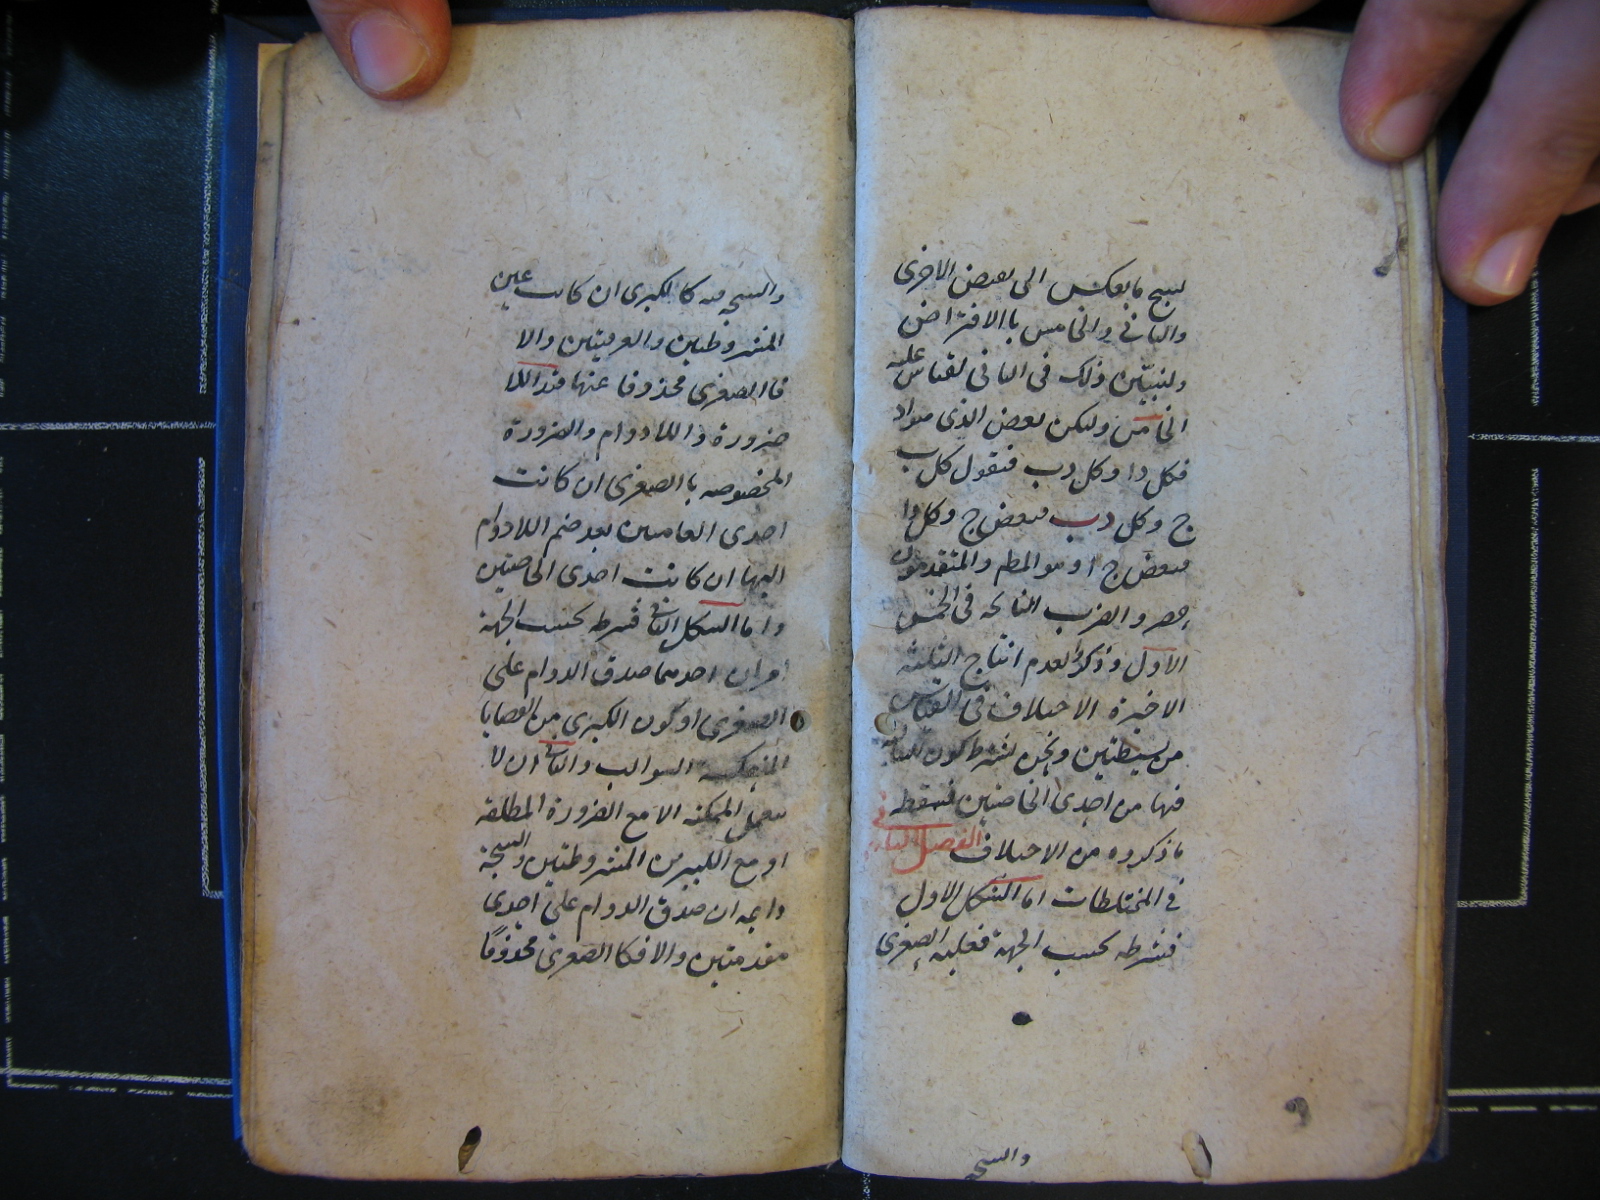 لينتج ما ينعكس الى بعض الاخرى
والثاني والخامس بالافتراض
ولنبين ذلك في الثاني ليقاس عليه
الخامس وليكن بعض الذي سواد
فكل دا وكل دب فنقول كل ب
ج وكل دب فبعض ج وكل دا
فبعض ج ا وهو المط والمتقدمون
حصروا الضرب الناتجة في الخمس
الاول وذكروا لعدم انتاج الثلثة
الاخيرة الاختلاف في القياس
من بسيطتين ونحن نشترط كون السالبة
فيها من احدى الخاصتين فسقط
ما ذكروه من الاختلاف الفصل الثاني
في المختلطات اما الشكل الاول
فشرطه بحسب الجهة فعلية الصغرى
والنتيجة
والنتيجة فيه كالكبرى ان كانت غير
المشروطتين والعرفيتين والا
فاالصغرى محذوفا عنها قيد اللا
ضرورة واللادوام والضرورة
المخصوصه باالصغرى ان كانت
احدى العامتين بعد ضم اللادوام
اليها ان كانت احدى الخاصتين
واما الشكل الثاني فشرطه بحسب الجهة
امران احدهما صدق الدوام على
الصغرى او كون الكبرى من القضايا
المنعكسة السوالب والثاني ان لا
يستعمل الممكنه الا مع الضرورة المطلقه
او مع الكبريين المشروطتين والنتيجة
دايمه ان صدق الدوام على احدى
مقدمتين والا فكا الصغرى محذوفا